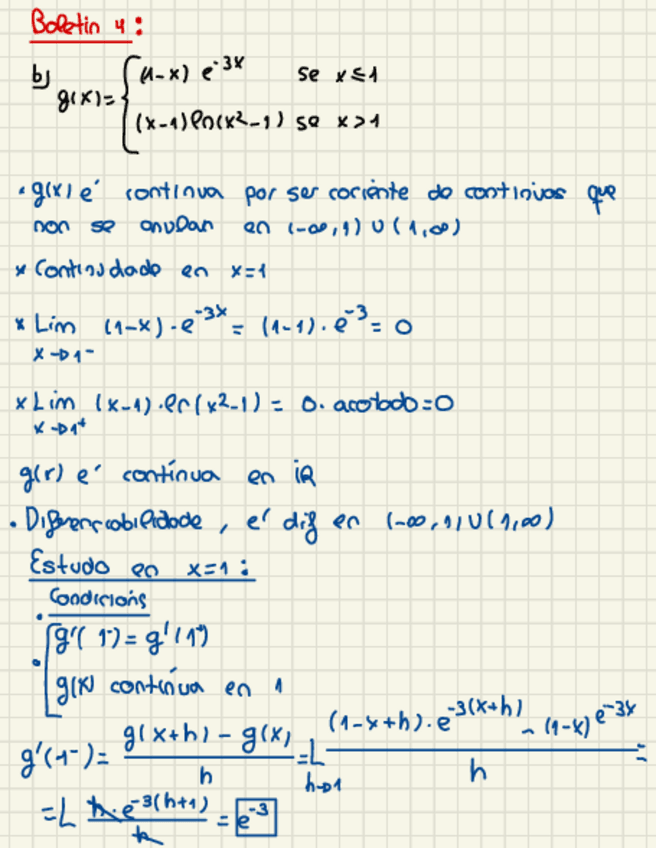 Boletín 4:
b) g(x) = { (1-x) e^-3x se x ≤ 1
(x-1) ln(x²-1) se x > 1
• g(x) e' continua por ser cociente de continuas que
non se anulan en (-∞,1) ∪ (1,∞)
* Continuidade en x=1
* Lim (1-x)·e^-3x = (1-1)·e^-3 = 0
x→1⁻
* Lim (x-1)·ln(x²-1) = 0·acotado=0
x→1⁺
g(x) e' contínua en ℝ
• Diferenciabilidade, e' dif en (-∞,1)∪(1,∞)
Estudo en x=1:
• Condicións
• [ g'(1⁻) = g'(1⁺)
g(x) contínua en 1
g'(1⁻) = (g(x+h) - g(x))/h = L h→1 ((1-x+h)·e^-3(x+h) - (1-x) e^-3x)/h =
= L (h·e^-3(h+1))/h = e^-3